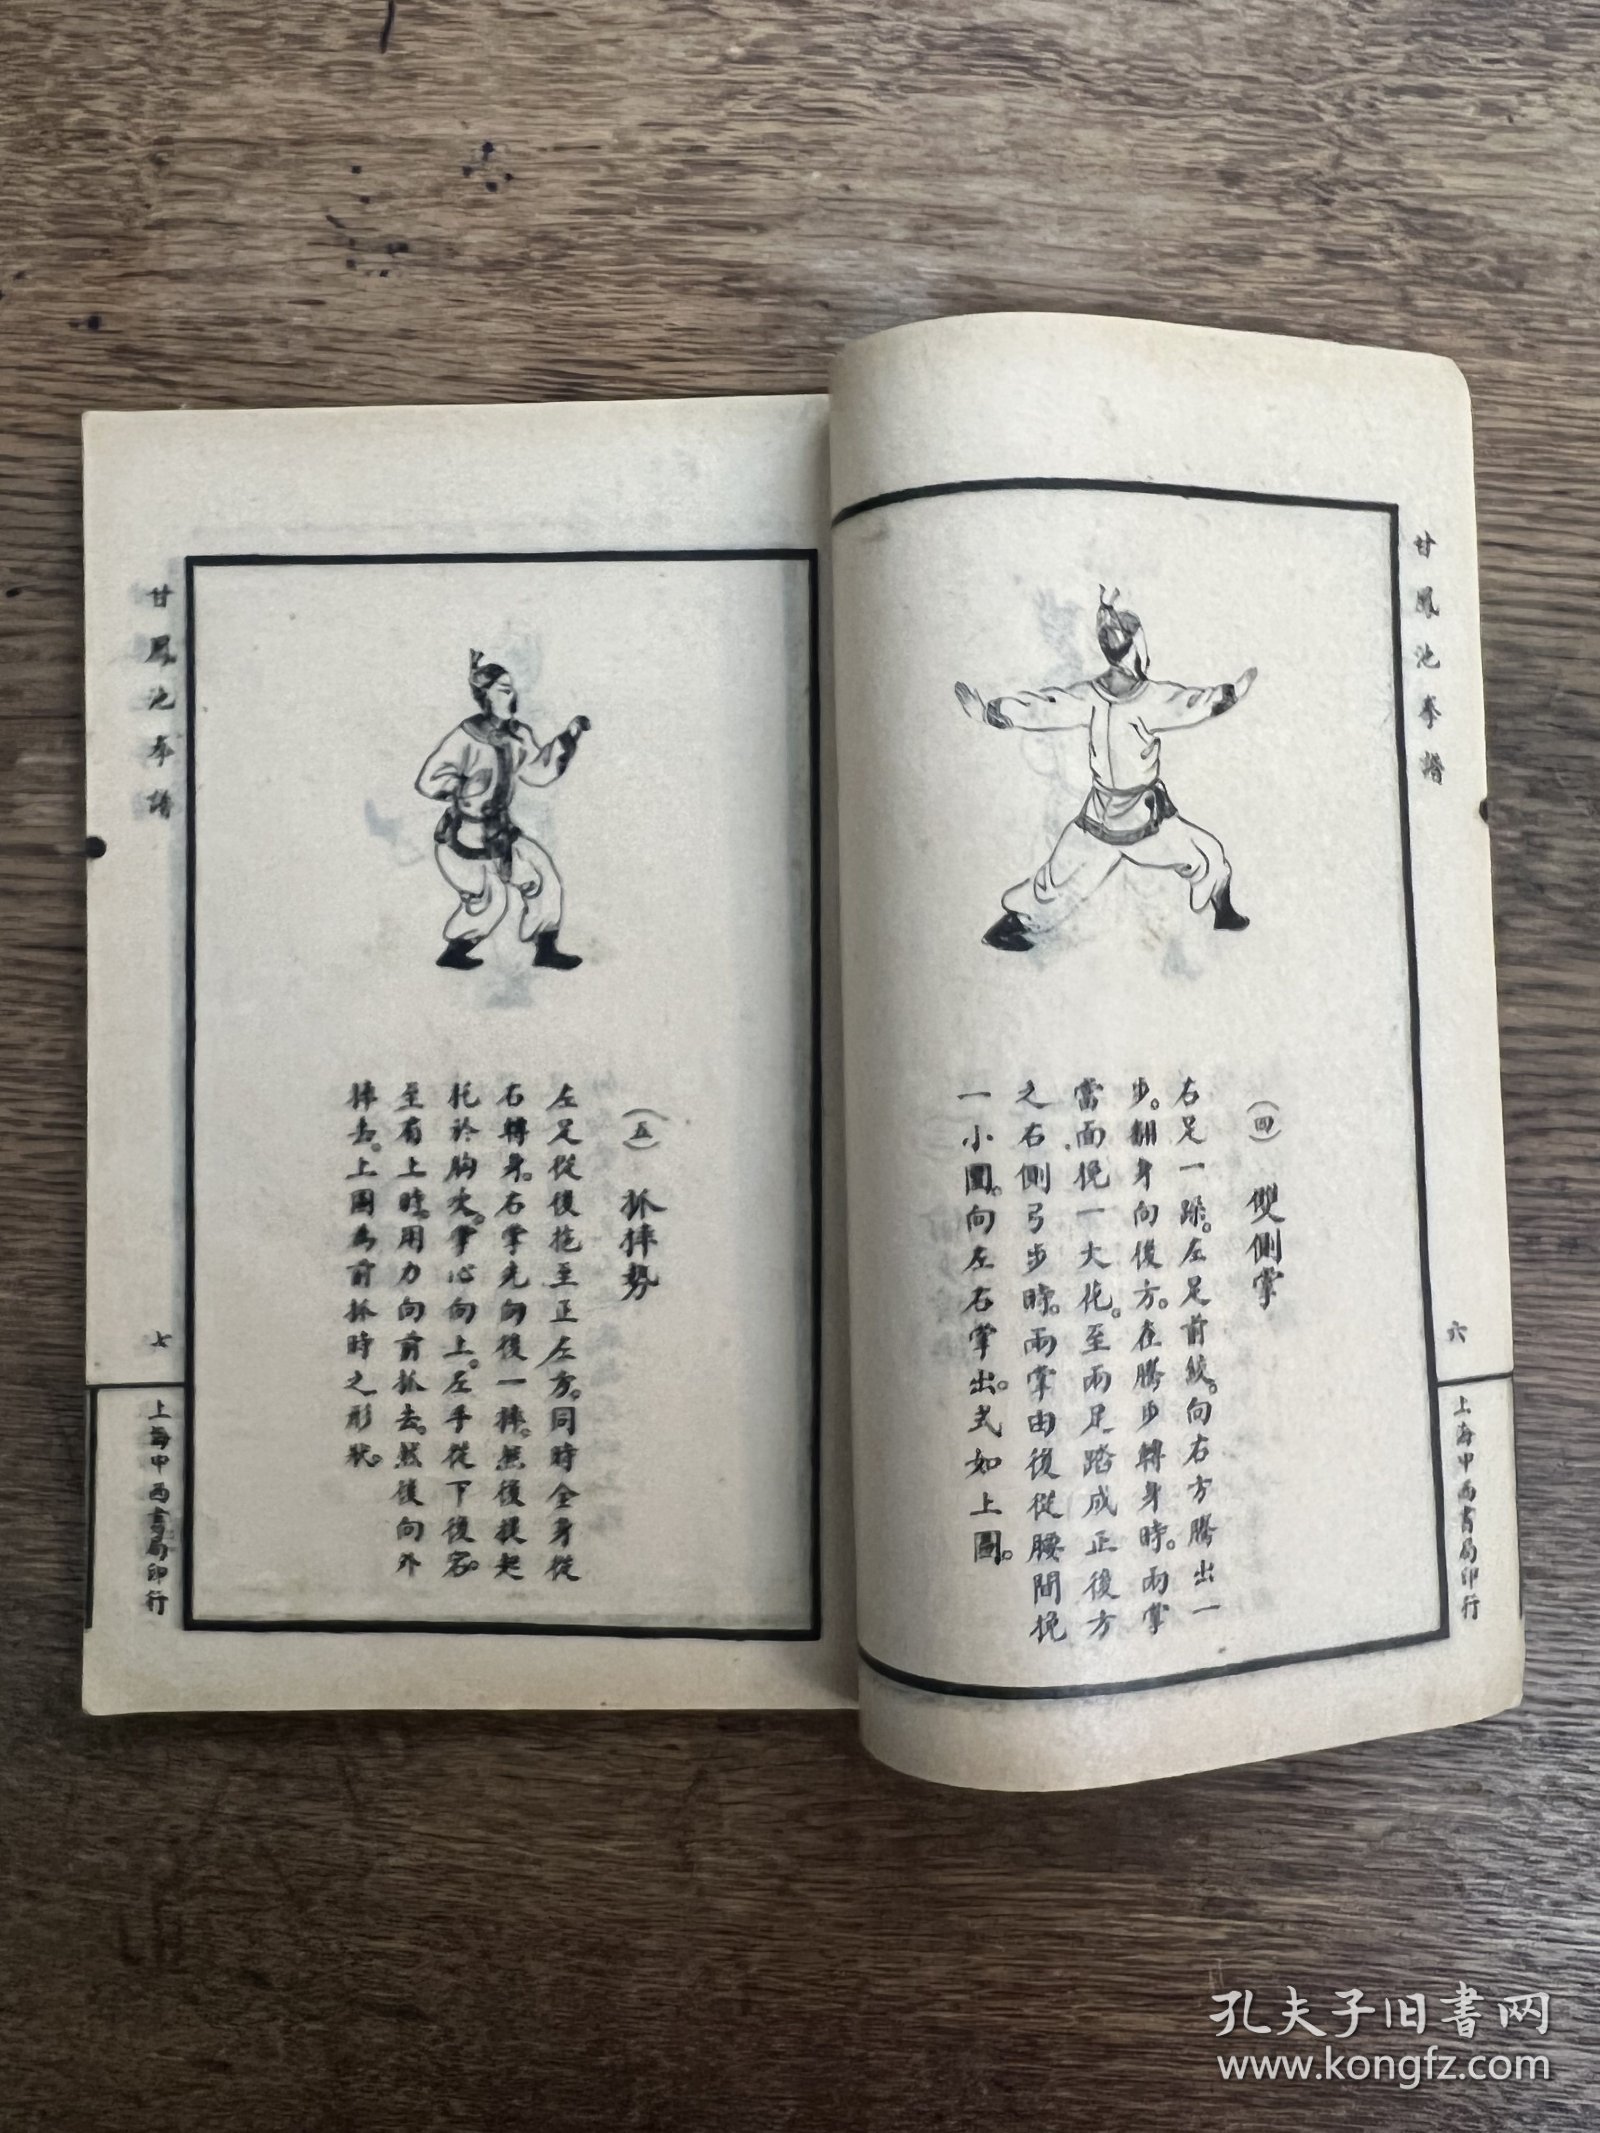 甘鳳池拳譜
六
上海中西書局印行
(四) 雙側掌
右足一跺。左足前絞。向右方騰出一
步。翻身向後方。在騰步轉身時。兩掌
當面挽一大花。至兩足踏成正後方
之右側弓步時。兩掌由後從腰間挽
一小圈。向左右掌出。式如上圖。
甘鳳池拳譜
七
上海中西書局印行
(五) 抓摔勢
左足從後拖至正左方。同時全身從
右轉身。右掌先向後一摔。無後提起
托於胸次。掌心向上。左手從下後
至有上時。用力向前抓去。然後向外
摔去。上圖為前抓時之形狀。
孔夫子旧书网
www.kongfz.com